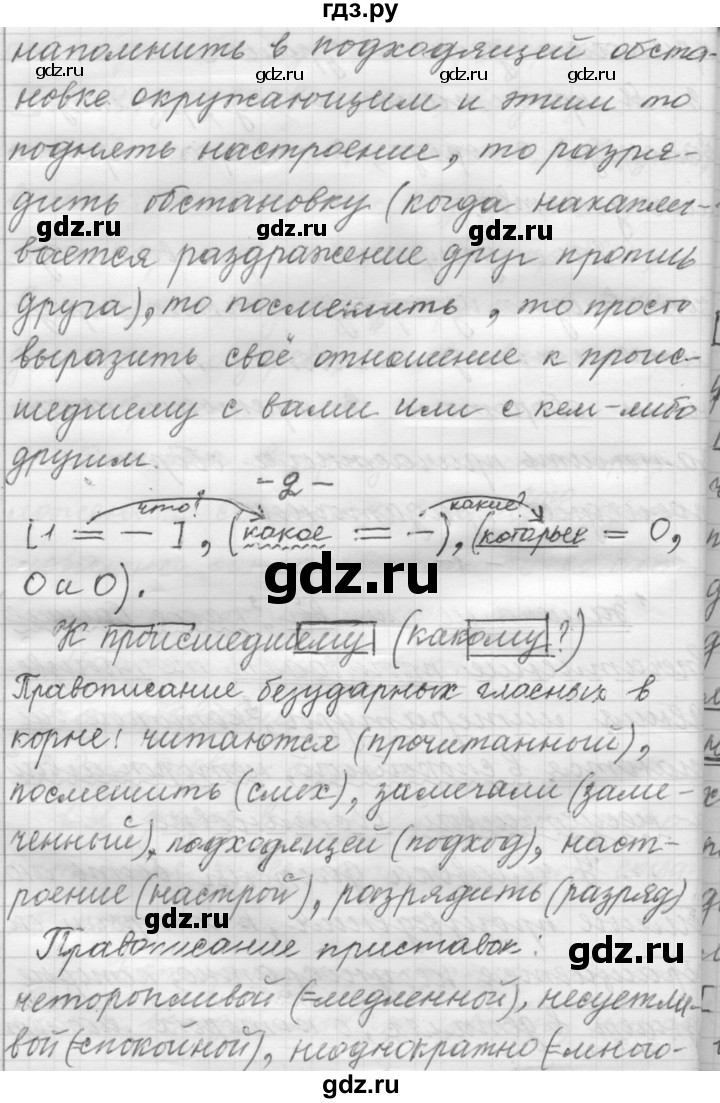 гдз.ру
напомнить в подходящей обста-
gdz.ru gdz.ru gdz.ru
новке окружающим и этим то
поднять настроение, то разря-
дить обстановку (когда накапли-
gdz.ru gdz.ru
вается раздражение друг против
друга), то посмешить, то просто
выразить своё отношение к проис-
шедшему с вами или с кем-либо
другим.
-2-
что? какие?
[1 = — ], (какое := —), (которые = О,
О и О).
gdz.ru
К происшедшему (какому?)
Правописание безударных гласных в
корне: читаются (прочитанный),
посмешить (смех), замечали (заме-
ченный), подходящей (подход), наст-
роение (настрой), разрядить (разряд)
gdz.ru
Правописание приставок:
gdz.ru
неторопливой (=медленной), несуетли-
вой (=спокойной), неоднократно (=много-
gdz.ru